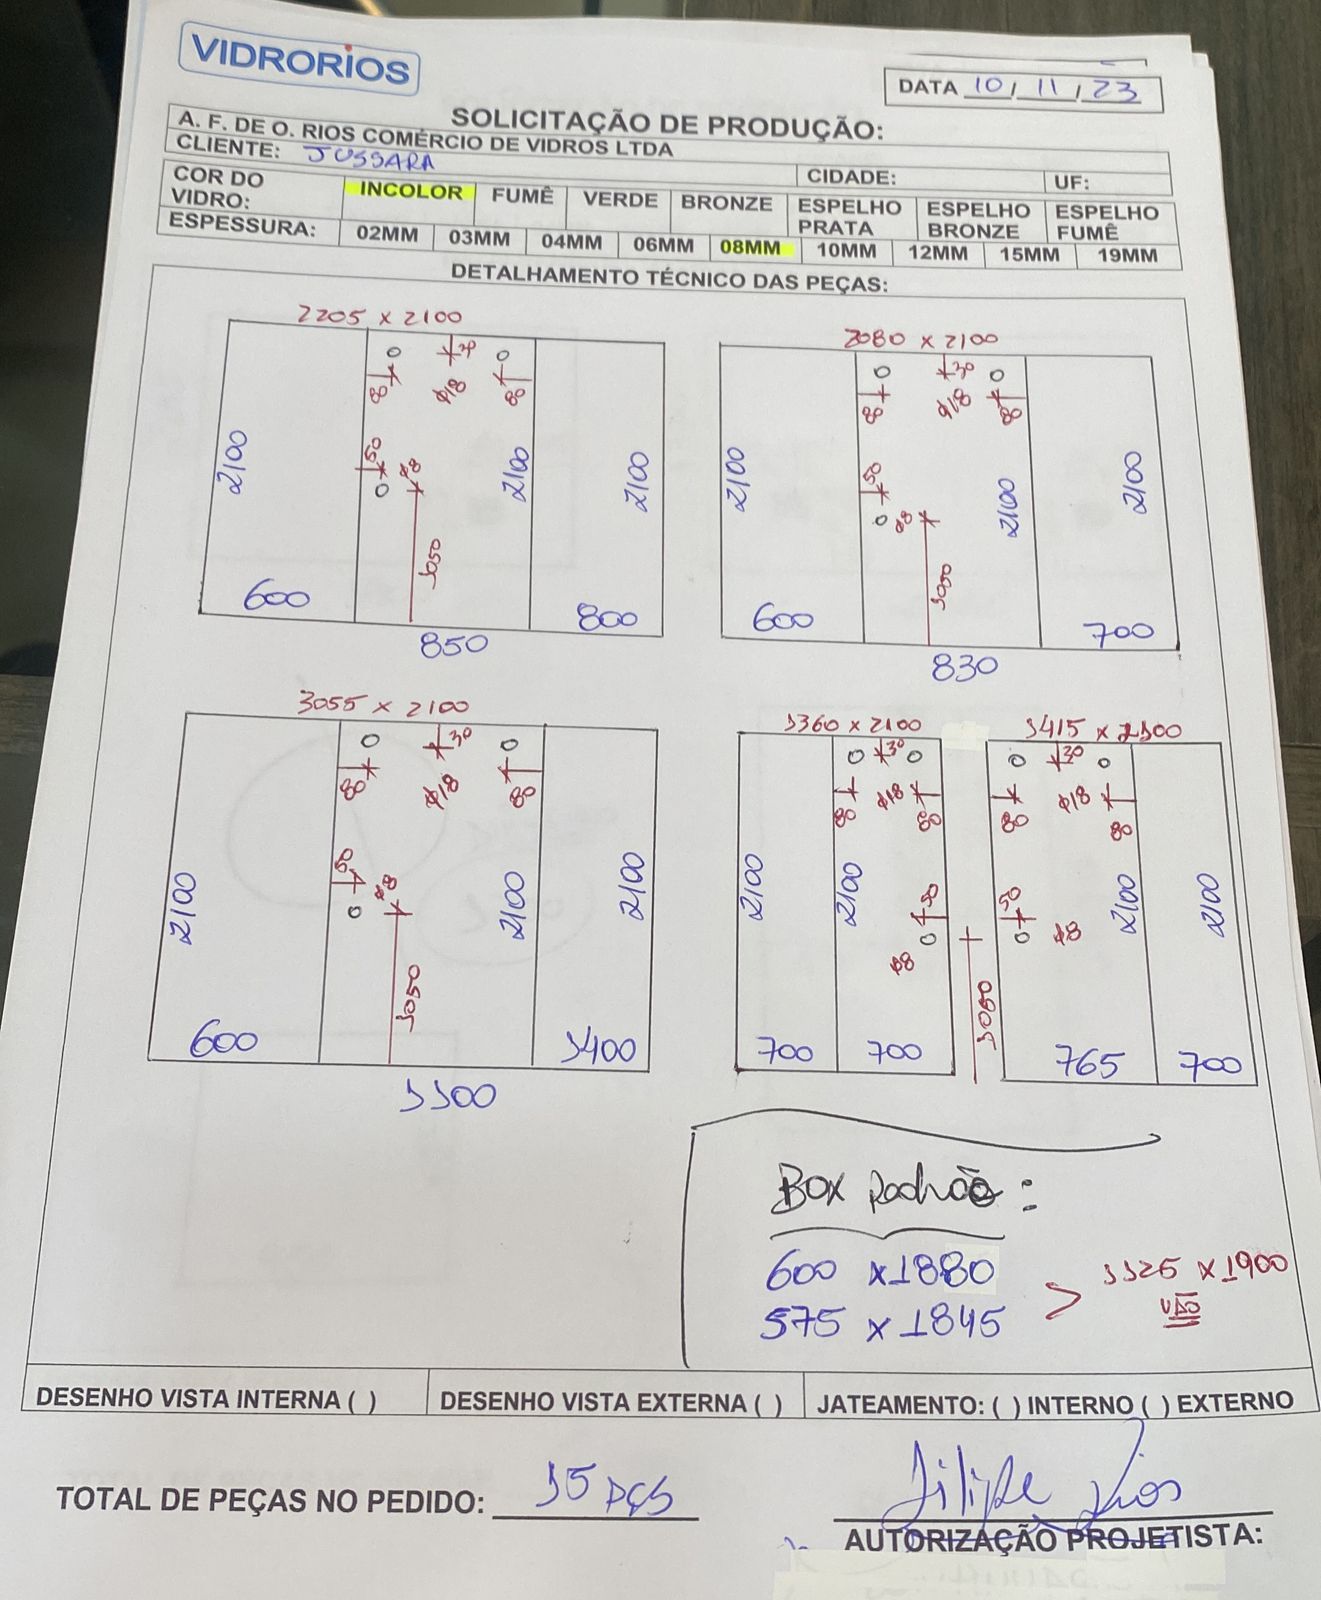 VIDRORIOS
DATA 10 / 11 / 23
SOLICITAÇÃO DE PRODUÇÃO:
A. F. DE O. RIOS COMÉRCIO DE VIDROS LTDA
CLIENTE: JUSSARA
CIDADE:
UF:
COR DO VIDRO:
INCOLOR
FUMÊ
VERDE
BRONZE
ESPELHO PRATA
ESPELHO BRONZE
ESPELHO FUMÊ
ESPESSURA:
02MM
03MM
04MM
06MM
08MM
10MM
12MM
15MM
19MM
DETALHAMENTO TÉCNICO DAS PEÇAS:
2205 x 2100
30
80
ø18
80
2100
50
ø8
2100
2100
1050
600
800
850
2080 x 2100
30
80
ø18
80
2100
50
ø8
2100
2100
1050
600
700
830
3055 x 2100
30
80
ø18
80
2100
50
ø8
2100
2100
1050
600
1400
1100
1360 x 2100
30
80
ø18
80
2100
2100
50
ø8
1050
700
700
1415 x 2100
30
80
ø18
80
50
ø8
2100
2100
765
700
Box Padrão:
600 x 1880
575 x 1845
> 1125 x 1900
VÃO
DESENHO VISTA INTERNA ( )
DESENHO VISTA EXTERNA ( )
JATEAMENTO: ( ) INTERNO ( ) EXTERNO
TOTAL DE PEÇAS NO PEDIDO: 15 PÇS
Filipe Rios
AUTORIZAÇÃO PROJETISTA: